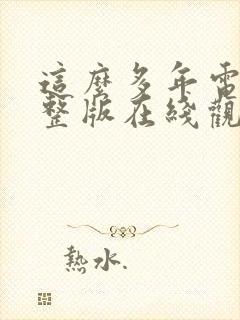 這麼多年電
整版在綫觀
熱水.